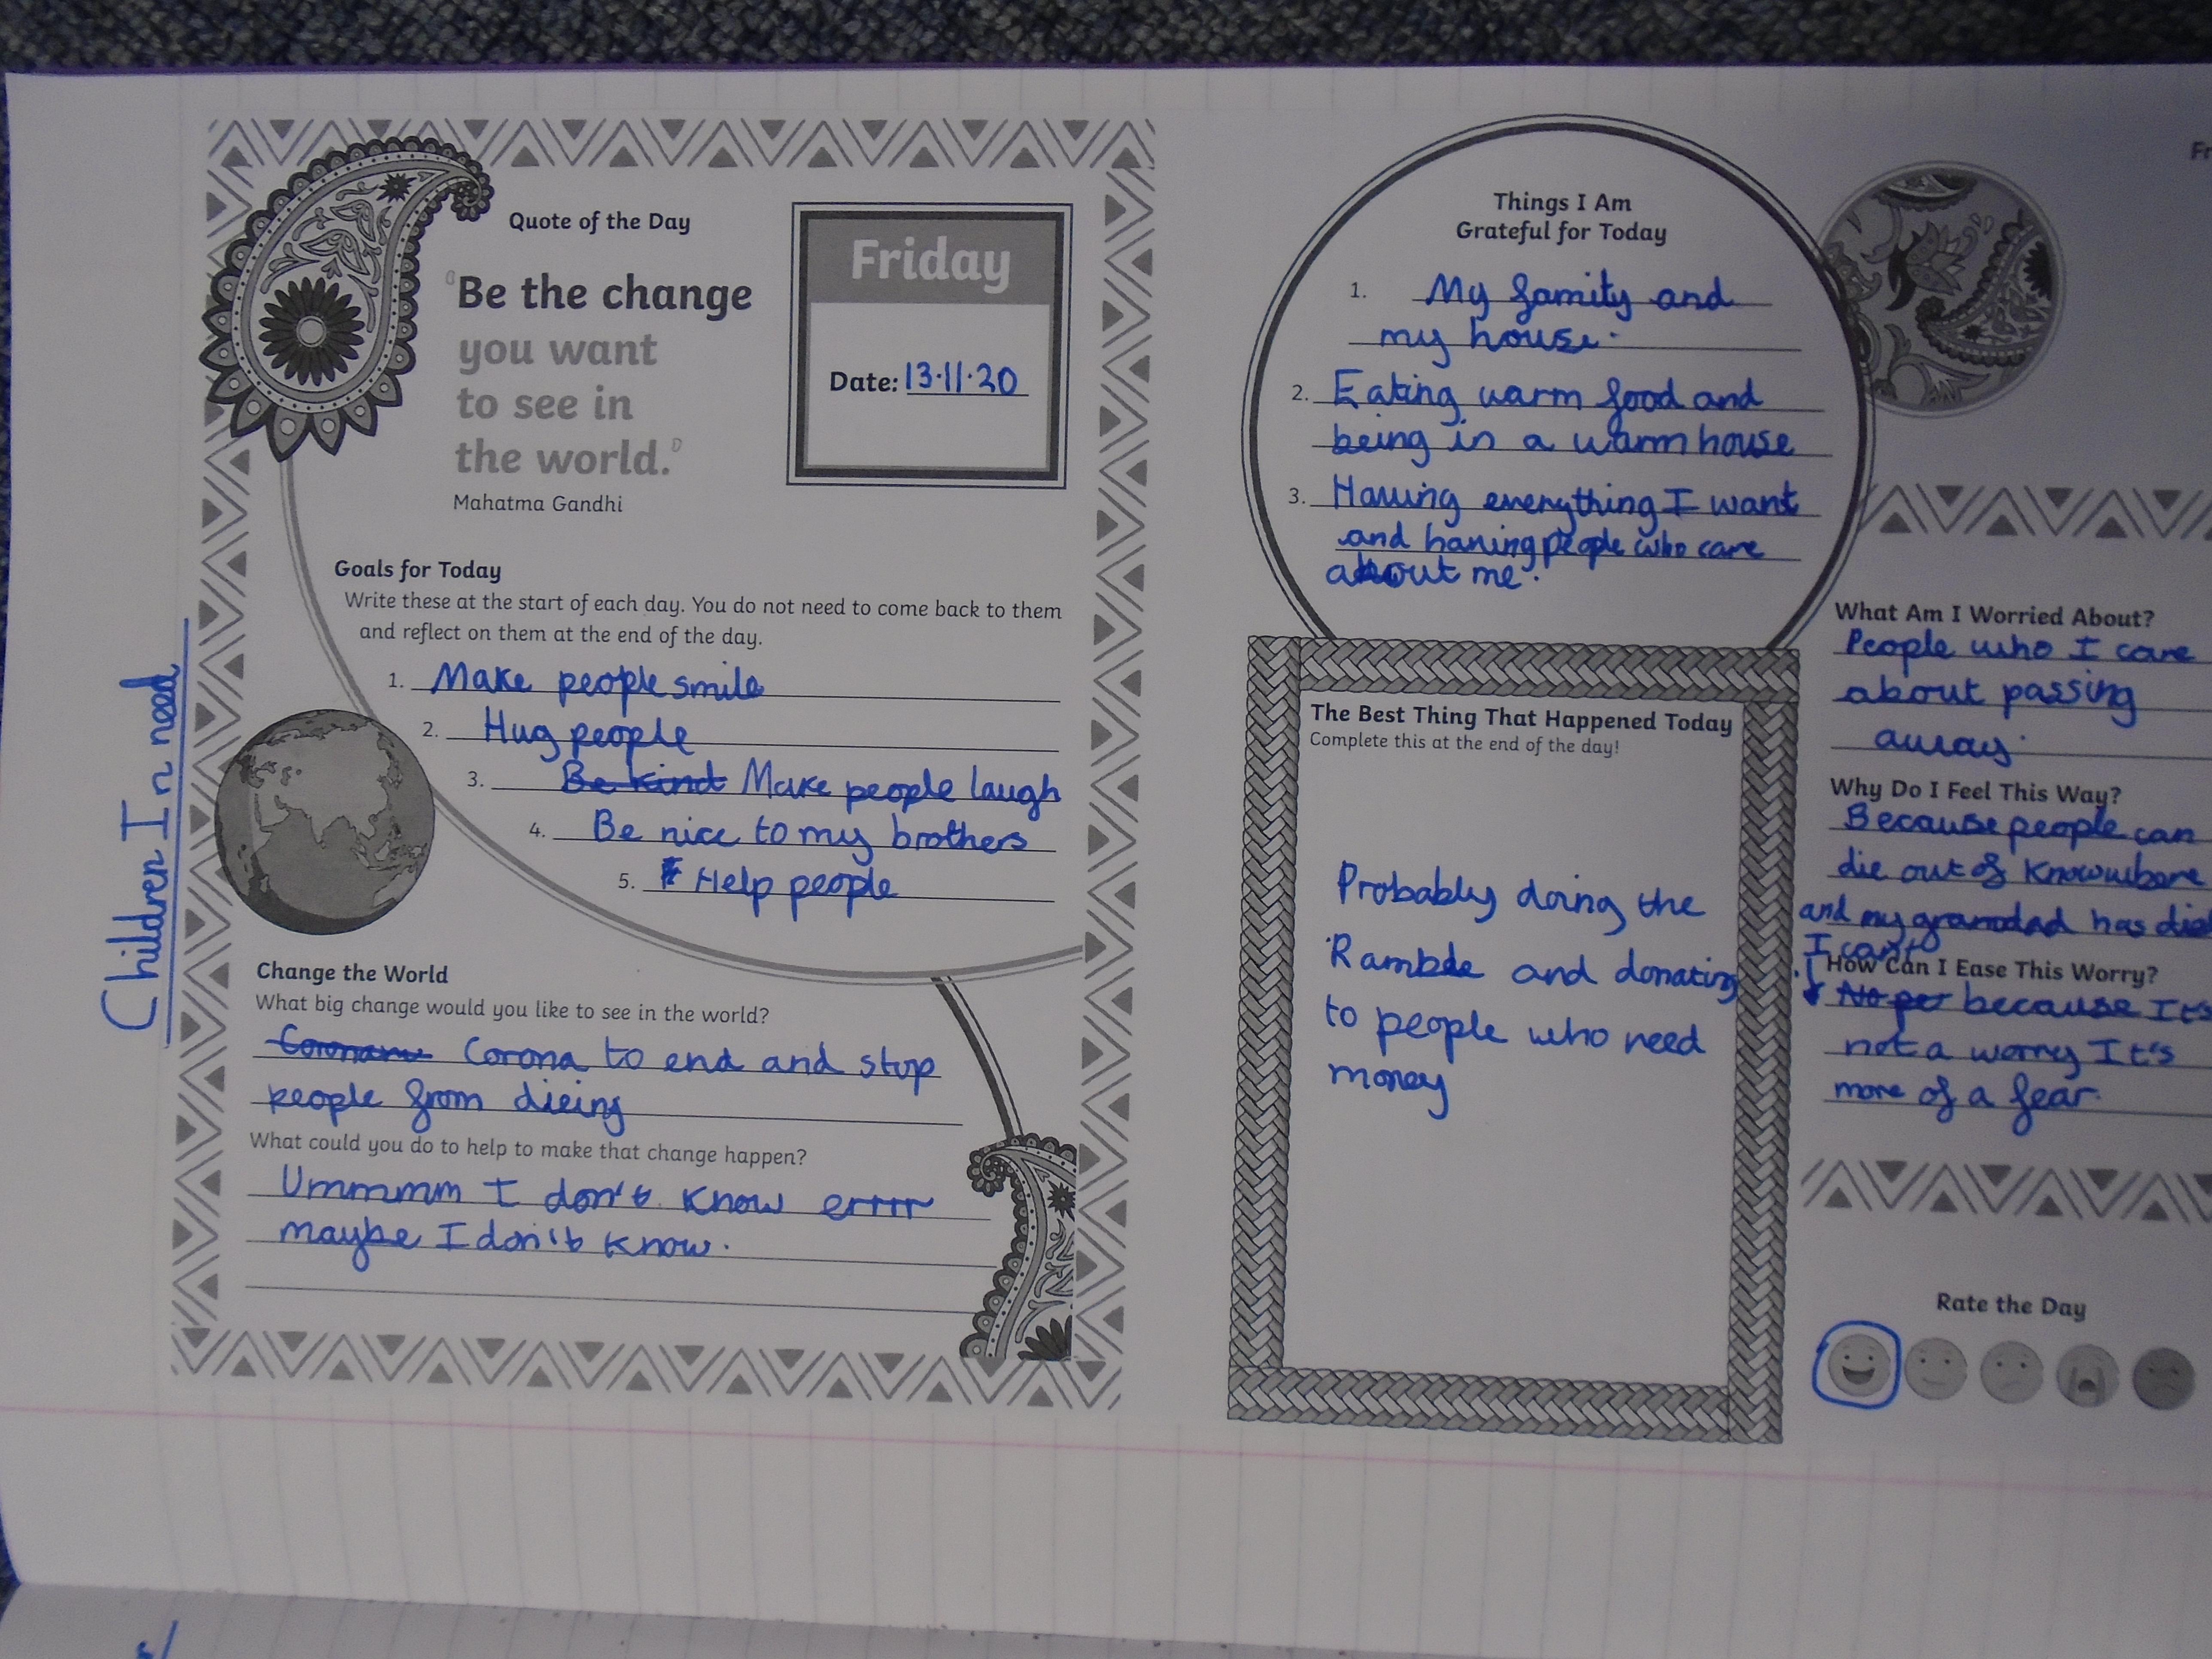 Children In need
Quote of the Day
'Be the change
you want
to see in
the world.'
Mahatma Gandhi
Friday
Date: 13.11.20
Goals for Today
Write these at the start of each day. You do not need to come back to them
and reflect on them at the end of the day.
1. Make people smile
2. Hug people
3. Be kind Make people laugh
4. Be nice to my brothers
5. Help people
Change the World
What big change would you like to see in the world?
Corona to end and stop
people from dieing
What could you do to help to make that change happen?
Ummmm I don't know errrr
maybe I don't know.
Things I Am
Grateful for Today
1. My family and
my house.
2. Eating warm food and
being in a warm house
3. Having everything I want
and having people who care
about me.
The Best Thing That Happened Today
Complete this at the end of the day!
Probably doing the
Ramble and donating
to people who need
money
Fr
What Am I Worried About?
People who I care
about passing
away.
Why Do I Feel This Way?
Because people can
die out of knowwhere
and my grandad has died
I can't
How Can I Ease This Worry?
No per because It's
not a worry It's
more of a fear.
Rate the Day